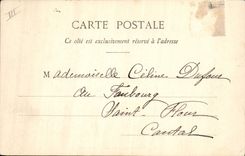 III
CARTE POSTALE
Ce côté est exclusivement réservé à l'adresse
Mademoiselle Céline Dufour
au Faubourg
Saint-Flour
Cantal